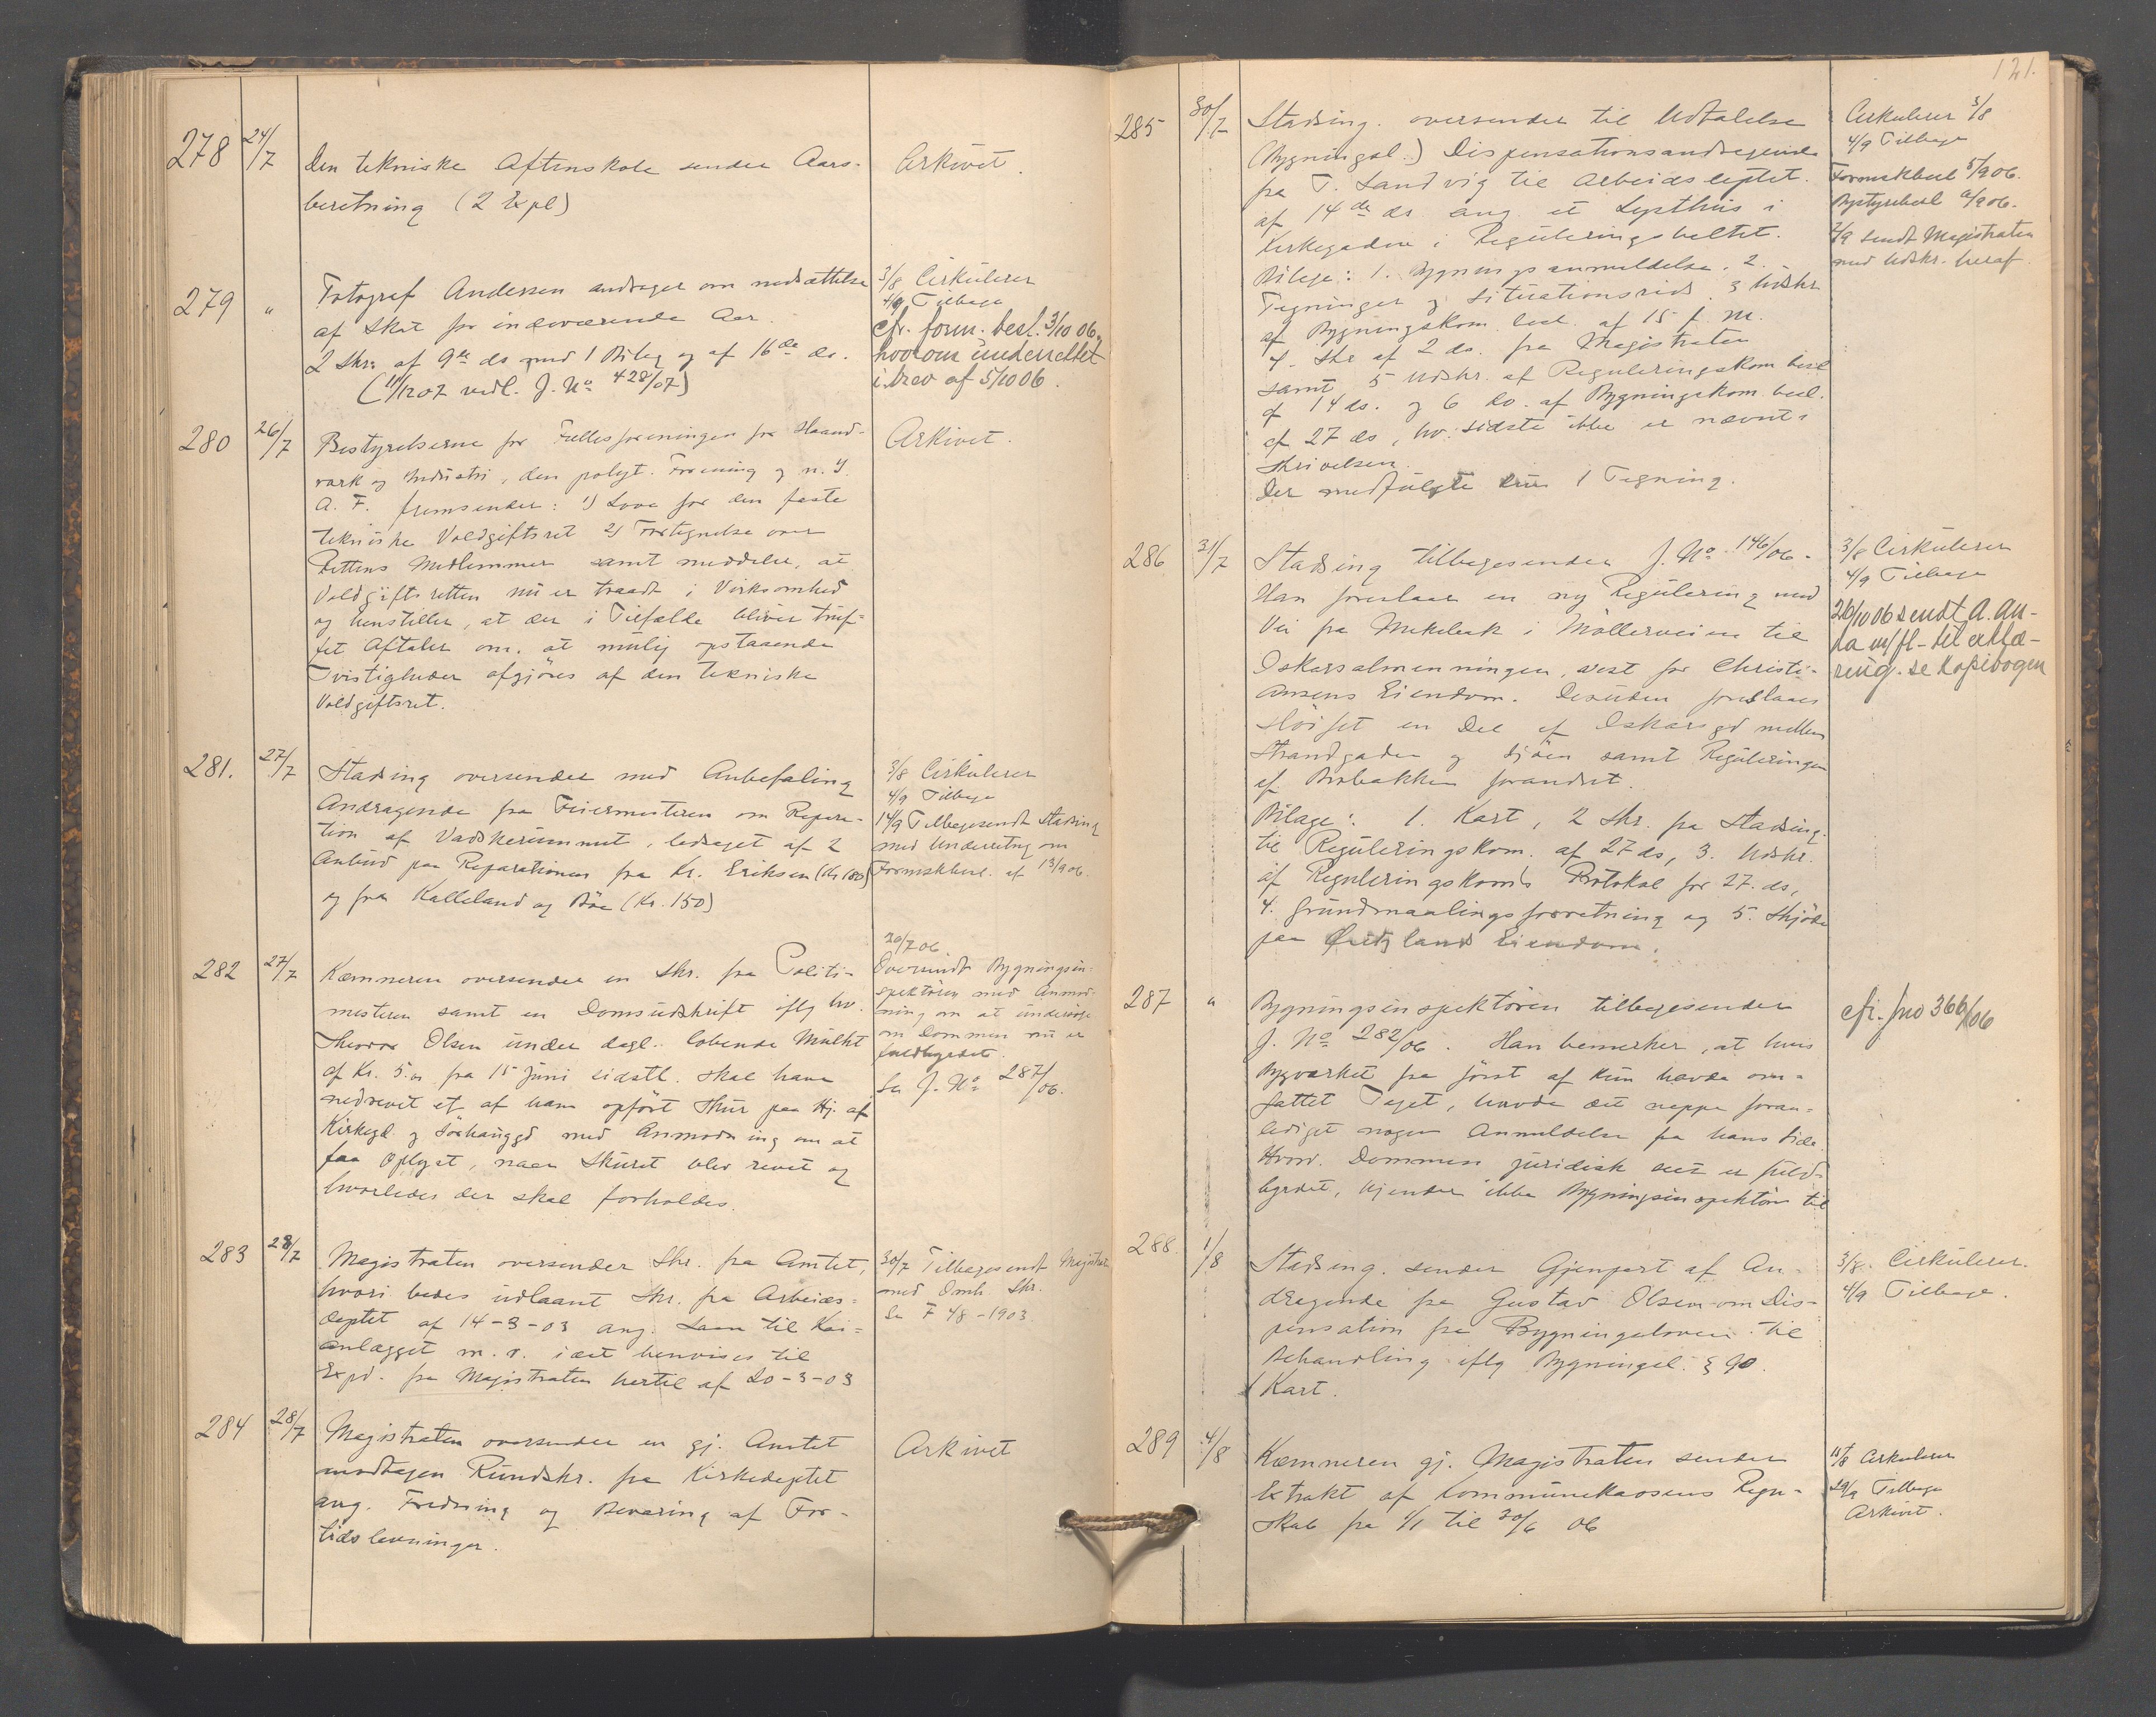 278 24/7 Den tekniske Aftenskole sender Aars- Arkivet.
beretning (2 Expl)
279 " Fotograf Andersen andrager om nedsættelse 3/8 Cirkulerer
af Skat for indeværende Aar. 4/9 Tilbage
2 Skr. af 9de ds med 1 Bilag og af 16de ds. cfr. form. besl. 3/10 06,
(11/12 07 vedl. J. No 428/07) hvorom underrettet
i brev af 5/10 06.
280 26/7 Bestyrelserne for Fællesforeningen for Haand- Arkivet.
værk og Industri, den polyt. Forening og n. I.
A. F. fremsender: 1) Love for den faste
tekniske Voldgiftsret 2) Fortegnelse over
Rettens Medlemmer samt meddeler, at
Voldgiftsretten nu er traadt i Virksomhed
og henstiller, at der i Tilfælde bliver truf-
fet Aftaler om, at mulig opstaaende
Tvistigheder afgjøres af den tekniske
Voldgiftsret.
281. 27/7 Stadsing oversender med Anbefaling 3/8 Cirkulerer
Andragende fra Feiermesteren om Repara- 4/9 Tilbage
tion af Vadskerummet, ledsaget af 2 14/9 Tilbagesendt Stadsing
Anbud paa Reparationen fra Kr. Eriksen (Kr 180) med Underretng om
og fra Kalleland og Böe (Kr. 150) Formskbesl. af 13/9 06.
282 27/7 Kæmneren oversender en Skr. fra Politi- 30/7 06
mesteren samt en Domsudskrift iflg hv. Oversendt Bygningsin-
Theodor Olsen under dagl. løbende Mulkt spektören med Anmod-
af Kr. 5.00 fra 15 Juni sidstl. skal have ning om at undersöge
nedrevet et af ham opført Skur paa Hj. af om Dommen nu er
Kirkegd. og Sörhauggd med Anmodning om at fuldbyrdet.
faa Oplyst, naar Skuret blev revet og Se J. No 287/06.
hvorledes der skal forholdes.
283 28/7 Magistraten oversender Skr. fra Amtet, 30/7 Tilbagesendt Magistrat
hvori bedes udlaant Skr. fra Arbeids- med Omh. Skr.
deptet af 14-3-03 ang. Laan til Kai- Se F 4/8-1903.
anlægget m. v. idet henvises til
Expd. fra Magistraten hertil af 20-3-03
284 28/7 Magistraten oversender en gj. Amtet Arkivet
modtagen Rundskr. fra Kirkedeptet
ang. Fredning og Bevaring af For-
tidslevninger.
121.
285 30/7 Stadsing. oversender til Udtalelse Cirkulerer 3/8
(Bygningsl.) Dispensationsandragende 4/9 Tilbage
fra T. Sandvig til Arbeidsdeptet. Formskbesl 5/9 06.
af 14de ds ang. et Lysthus i Bystyrebesl 6/9 06.
Kirkegaden i Reguleringsbeltet. 7/9 sendt Magistraten
Bilage: 1. Bygningsanmeldelse. 2. med Udskr. heraf.
Tegninger og Situationsrids. 3 Udskr
af Bygningskom. besl. af 15 f. M.
4. Skr af 2 ds. fra Magistraten
samt 5 Udskr. af Reguleringskom besl
af 14 ds. og 6 do. af Bygningskom. besl.
af 27 ds, hv. sidste ikke er nævnt i
Skrivelsen.
Der medfulgte kun 1 Tegning.
286 31/7 Stadsing tilbagesender J. No 146/06. 3/8 Cirkulerer
Han foreslaar en ny Regulering med 4/9 Tilbage
Vei fra Mekelæk i Möllerveien til 26/10 06 sendt A. An-
Oskarsalmenningen, vest for Christi- ka m/fl - til erklæ-
ansens Eiendom. Desuden foreslaaes ring. se Kopibogen
Slöifet en Del af Oskarsgd mellem
Strandgaden og Sjöen samt Reguleringen
af Brobakken forandret.
Bilage: 1. Kart, 2 Skr. fra Stadsing.
til Reguleringskom. af 27 ds, 3. Udskr.
af Reguleringskom's Protokol for 27. ds,
4. Grundmaalingsforretning og 5. Skjöde
paa lands Eiendom.
287 " Bygningsinspektören tilbagesender cfr. jno 366/06
J. No 282/06. Han bemerker, at hvis
Bygværket fra først af kun havde om-
fattet Taget, havde det neppe foran-
lediget nogen Anmeldelse fra hans Side.
Hvorv. Dommen juridisk seet er fuld-
byrdet, kjender ikke Bygningsinspektören til
288. 1/8 Stadsing. sender Gjenpart af An- 3/8. Cirkulerer.
dragende fra Gustav Olsen om Dis- 4/9 Tilbage.
pensation fra Bygningsloven til
Behandling iflg Bygningsl. § 90.
1 Kart.
289 4/8 Kæmneren gj. Magistraten sender 11/8 Cirkulerer
Extrakt af Kommunekassens Regn- 29/9 Tilbage
skab fra 1/1 til 30/6 06 Arkivet.